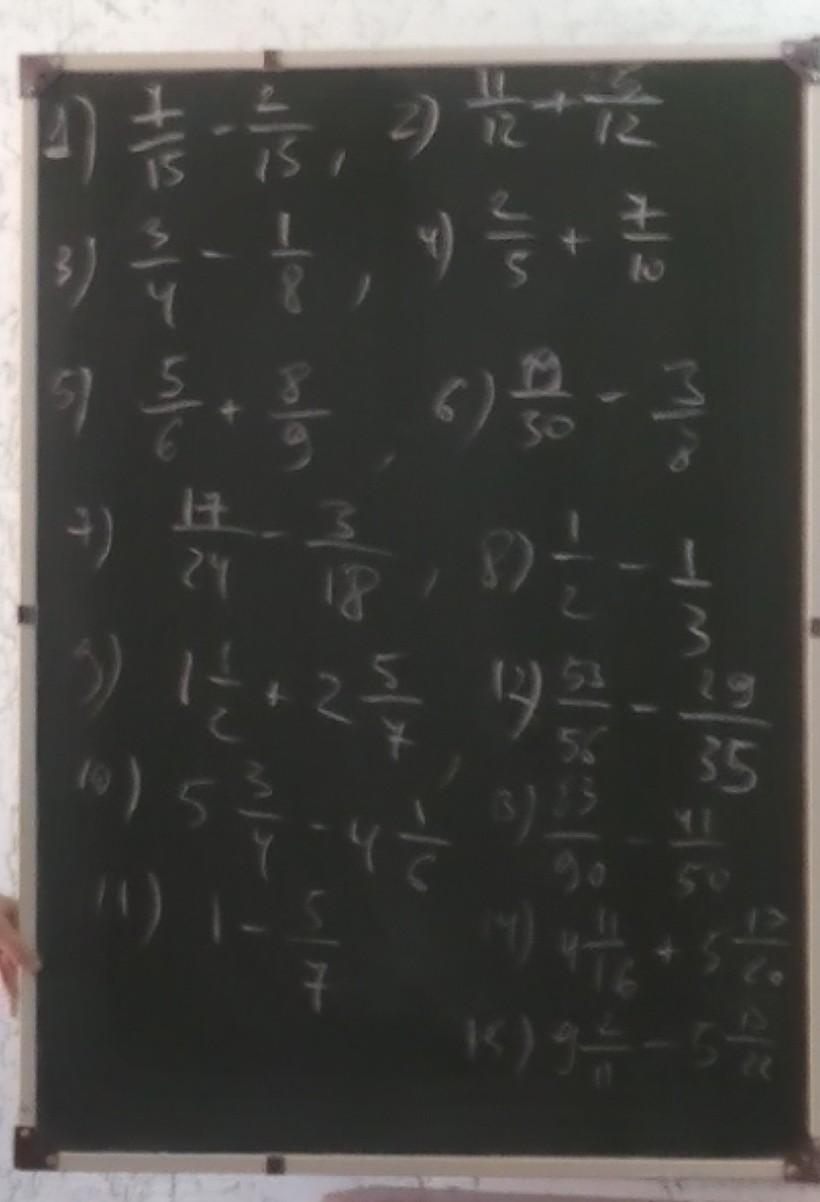 1) 7/15 - 2/15, 2) 11/12 + 5/12
3) 3/4 - 1/8, 4) 2/5 + 7/10
5) 5/6 + 8/9, 6) 19/30 - 3/8
7) 17/24 - 3/18, 8) 1/2 - 1/3
9) 1 1/2 + 2 5/7, 12) 53/56 - 29/35
10) 5 3/4 - 4 1/6 13) 83/90 - 41/50
11) 1 - 5/7 14) 4 11/16 + 5
15) 9 2/11 - 5